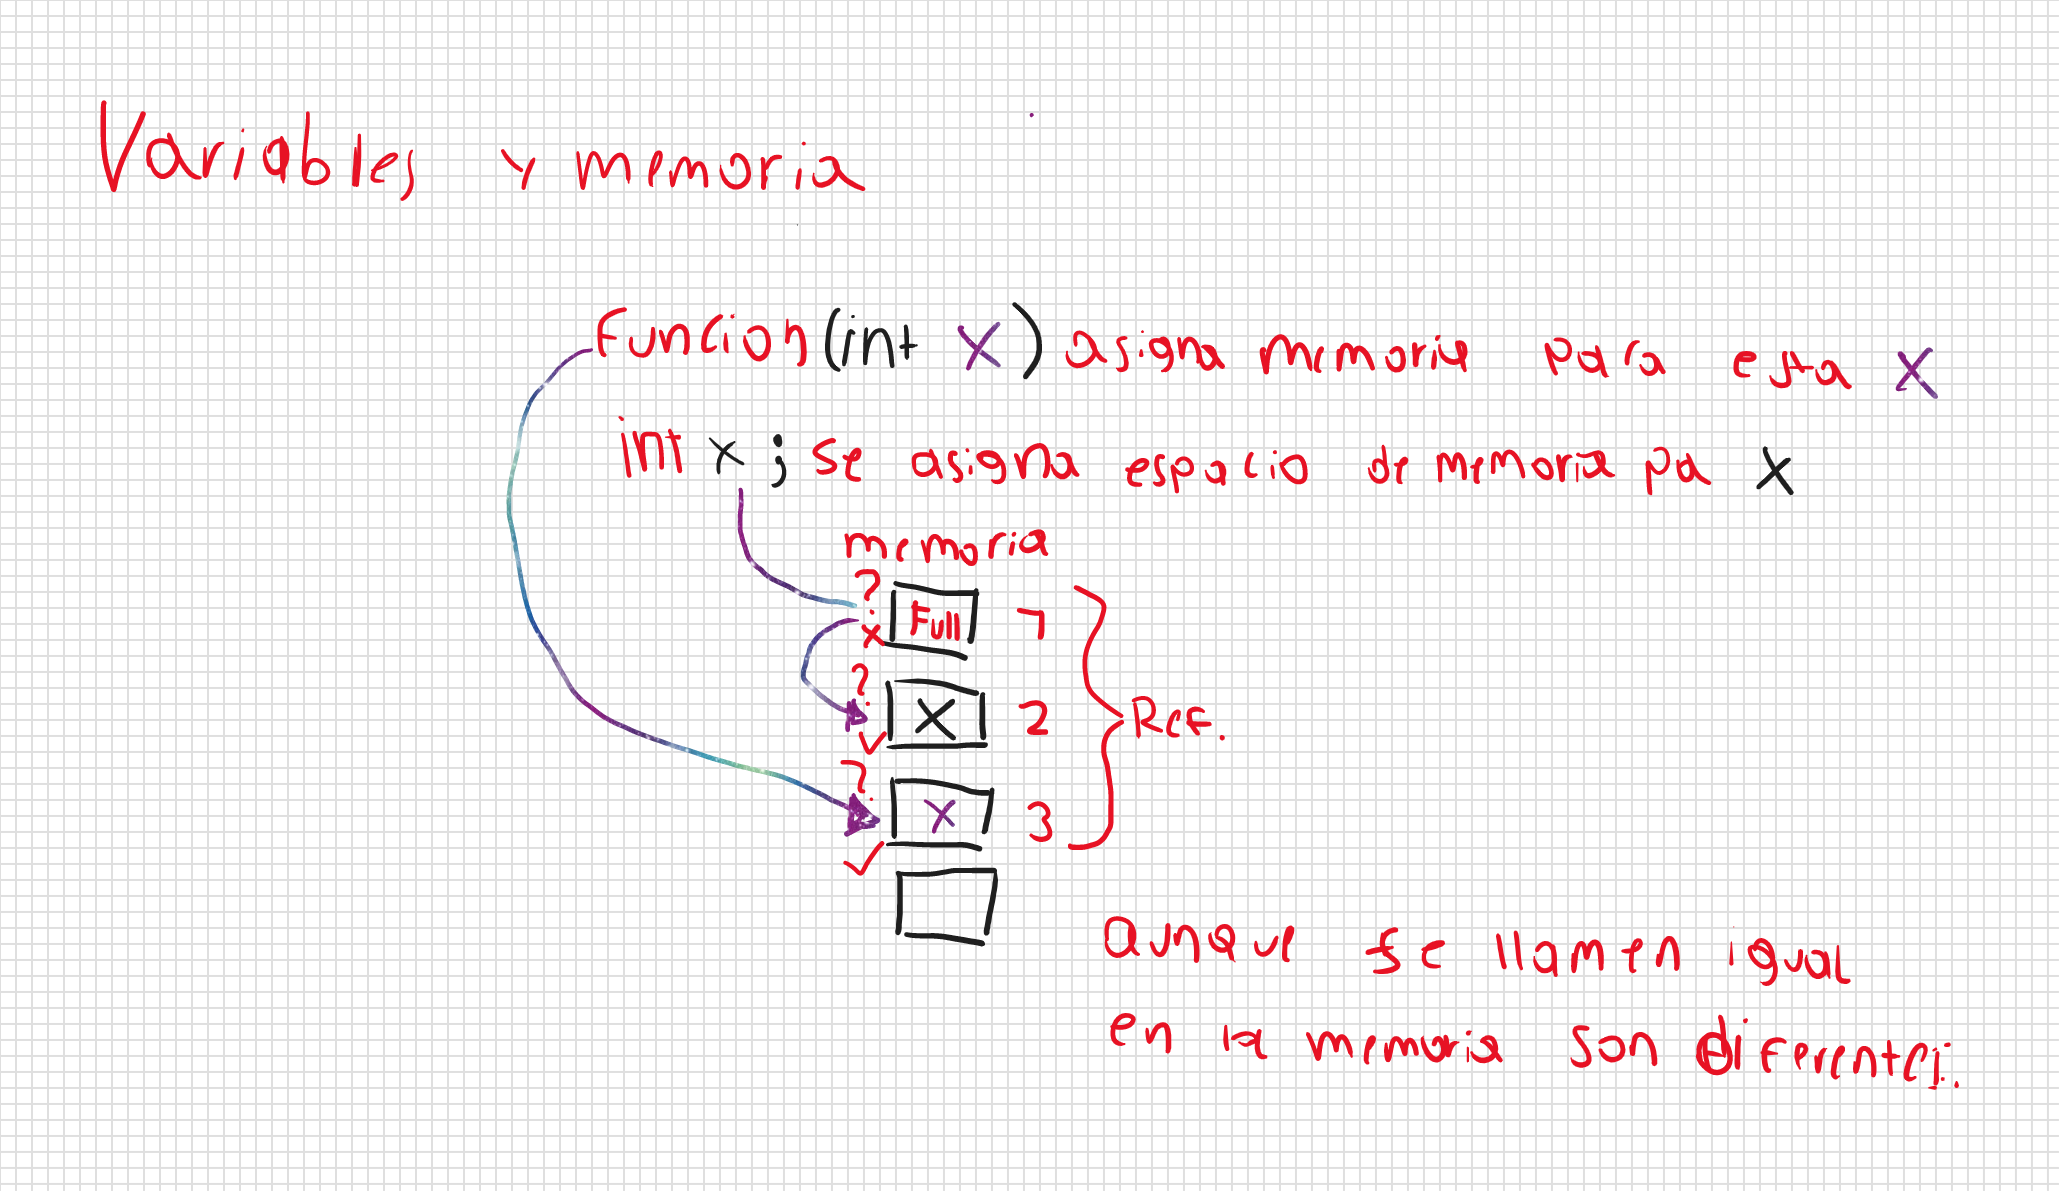 Variables y memoria
Funcion (int X) asigna memoria para esta X
int x ; se asigna espacio de memoria pa X
memoria
? x Full 1
? X 2
Ref.
? X 3
aunque se llamen igual
en la memoria son diferentes.